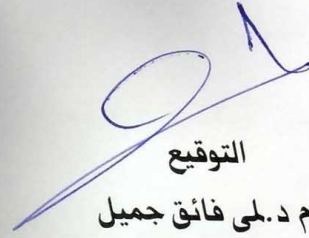 التوقيع
م د.لمى فائق جميل